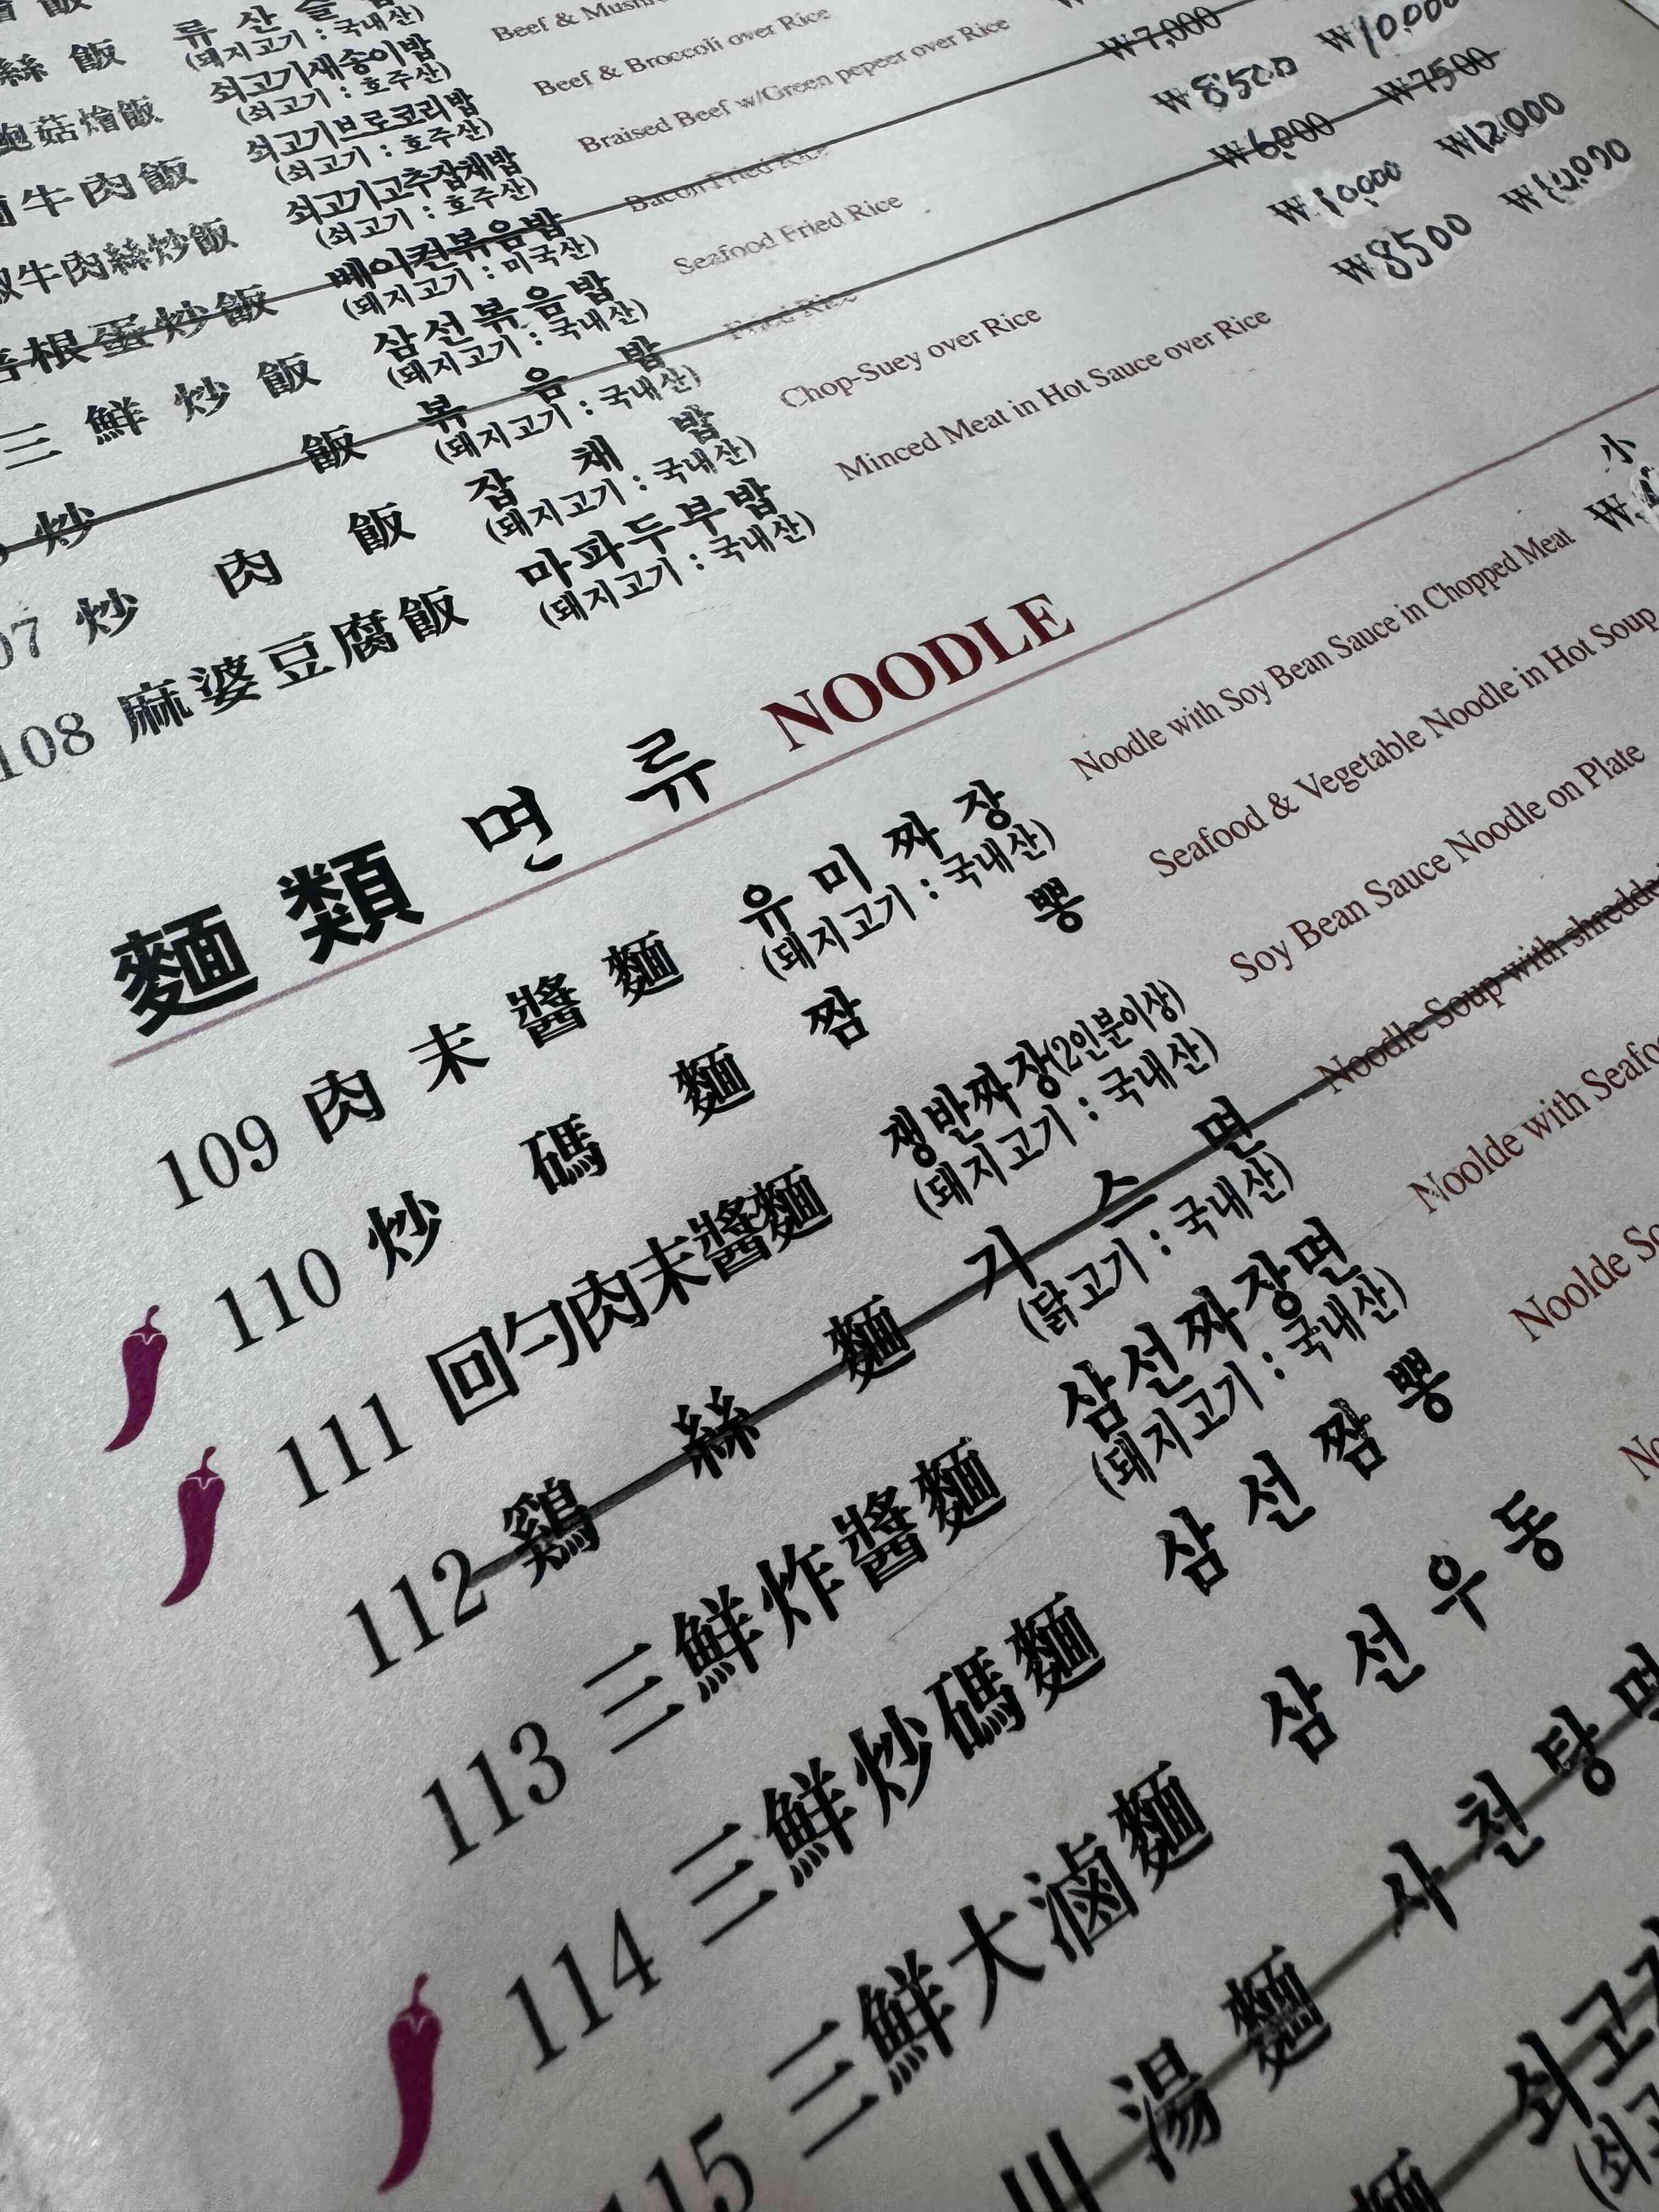 絲 飯 류 산 슬 Beef &
(돼지고기 : 국내산)
菇燴飯 쇠고기새송이밥 Beef & Broccoli over Rice
(쇠고기 : 호주산)
牛肉飯 쇠고기브로코리밥 Braised Beef w/Green pepeer over Rice
(쇠고기 : 호주산)
牛肉絲炒飯 쇠고기고추잡채밥 Bacon Fried Rice ₩7,000
(쇠고기 : 호주산)
根蛋炒飯 베이컨볶음밥 Seafood Fried Rice ₩8500 ₩10,000
(돼지고기 : 미국산)
三鮮炒飯 삼선볶음밥 Fried Rice ₩6,000 ₩7500
(돼지고기 : 국내산)
炒 飯 볶 음 밥 Chop-Suey over Rice ₩10,000 ₩12,000
(돼지고기 : 국내산)
07 炒 肉 飯 잡 채 밥 Minced Meat in Hot Sauce over Rice ₩8500
(돼지고기 : 국내산)
108 麻婆豆腐飯 마파두부밥
(돼지고기 : 국내산)
麵 類 면 류 NOODLE
小
109 肉 末 醬 麵 유 미 짜 장 Noodle with Soy Bean Sauce in Chopped Meat ₩
(돼지고기 : 국내산)
110 炒 碼 麵 짬 뽕 Seafood & Vegetable Noodle in Hot Soup
111 回勺肉末醬麵 쟁반짜장(2인분이상) Soy Bean Sauce Noodle on Plate
(돼지고기 : 국내산)
112 鷄 絲 麵 기 스 면 Noodle Soup with shredde
(닭고기 : 국내산)
113 三鮮炸醬麵 삼선짜장면 Noolde with Seafo
(돼지고기 : 국내산)
114 三鮮炒碼麵 삼 선 짬 뽕 Noolde So
115 三鮮大滷麵 삼 선 우 동 No
川 湯 麵 사 천 탕 면
麵 쇠고
(쇠고